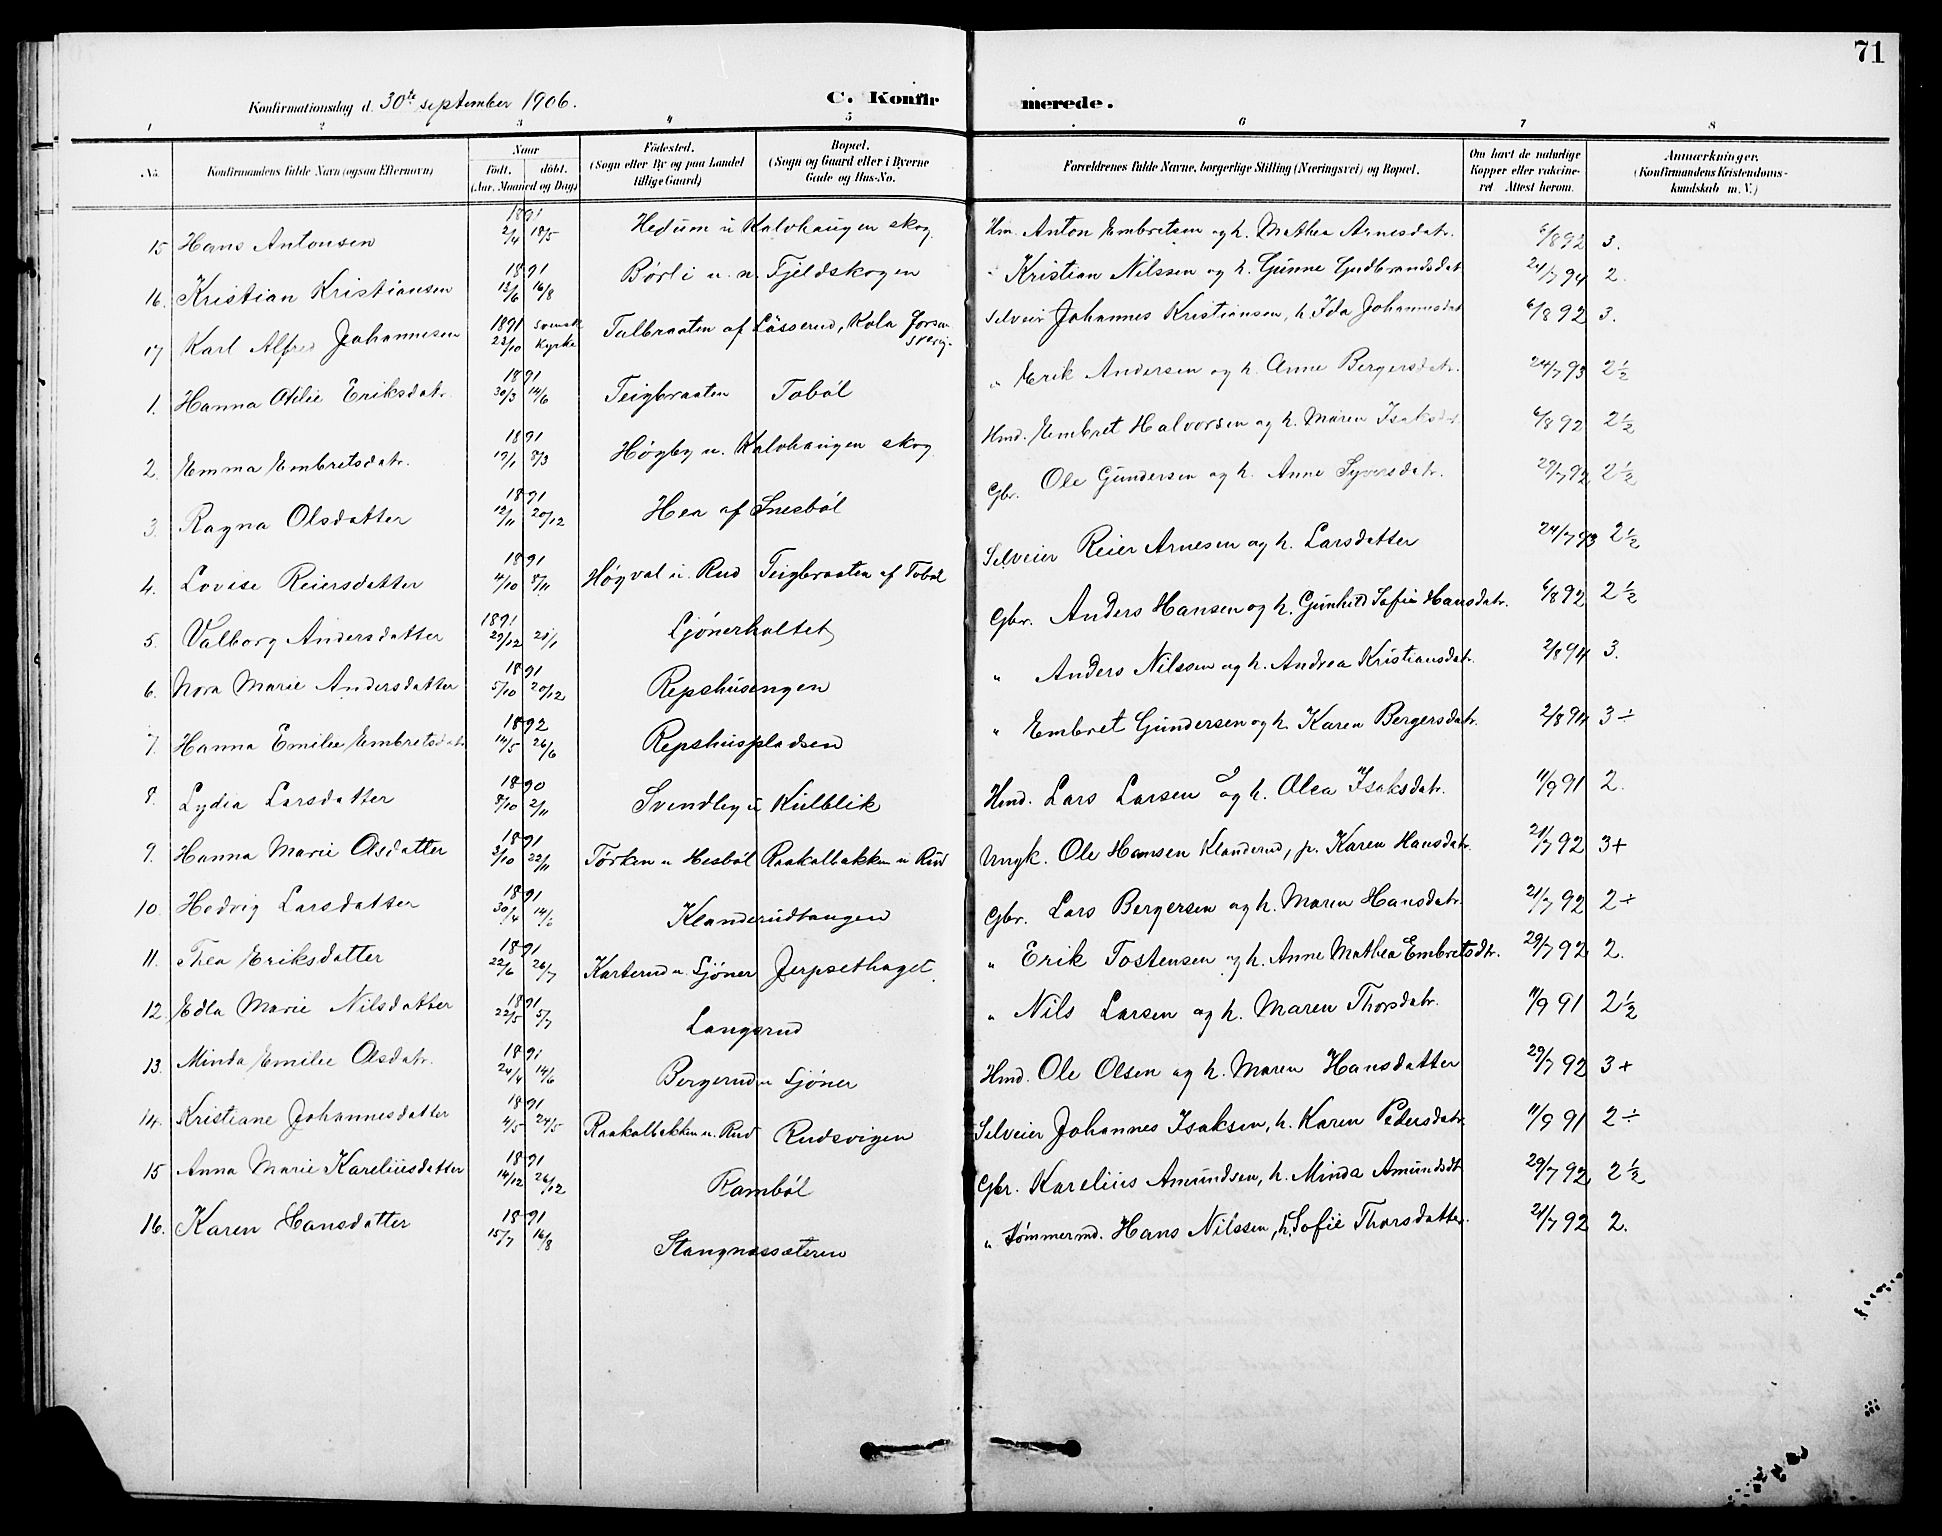 71
Konfirmationsdag d. 30te september 1906. C. Konfir merede.
1 2 3 4 5 6 7 8
No. Konfirmandens fulde Navn (ogsaa Efternavn) Naar Født. døbt. (Aar, Maaned og Dag) Fødested. (Sogn eller By og paa Landet tillige Gaard) Bopæl. (Sogn og Gaard eller i Byerne Gade og Hus-No. Forældrenes fulde Navne, borgerlige Stilling (Næringsvei) og Bopæl. Om havt de naturlige Kopper eller vakcineret. Attest herom. Anmærkninger. (Konfirmandens Kristendomskundskab m. V.)
15 Hans Antonsen 1891 2/4 18/5 Hedum u Kalvhaugen skog. Hm. Anton Embretsen og h. Mathea Arnesdatr. 6/8 92 3.
16. Kristian Kristiansen 1891 12/6 16/8 Børli u. n. Fjeldskogen " Kristian Nilssen og h. Gunne Gudbrandsdat 21/7 94 2.
17 Karl Alfred Johannesen 1891 23/10 svensk kyrke Talbraaten af Lässerud, Kola Selveir Johannes Kristiansen, h Ida Johannesdat 6/8 92 3.
1. Hanna Otilie Eriksdatr. 1891 30/3 14/6 Teigbraaten Tobøl " Erik Andersen og h. Anne Bergersdatr. 24/7 93 2½
2. Emma Embretsdatr. 1891 19/1 8/3 Høgby u. Kalvhaugen skog Hmd. Embret Halvorsen og h. Maren Isaksdat 6/8 92 2½
3. Ragna Olsdatter 1891 12/11 20/12 Hea af Snesbøl Gbr. Ole Gundersen og h. Anne Syversdatr. 29/7 92 2½
4. Lovise Reiersdatter 1891 4/10 8/11 Høgval u. Rud Teigbraaten af Tobøl Selveier Reier Arnesen og h. Larsdatter 24/7 93 2½
5. Valborg Andersdatter 1891 29/12 Sjønerholtet Gbr. Anders Hansen og h. Gunhild Sofie Hansdatr. 6/8 92 2½
6. Nora Marie Andersdatter 1891 5/10 20/12 Repshusengen " Anders Nilssen og h. Andrea Kristiansdatr. 2/8 94 3.
7. Hanna Emilie Embretsdatr 1892 14/5 26/6 Repshuspladsen " Embret Gundersen og h. Karen Bergersdatr. 2/8 94 3÷
8. Lydia Larsdatter 1890 8/10 2/11 Svendby u Kulblik Hmd. Lars Larsen og h. Olea Isaksdatr. 11/9 91 2.
9. Hanna Marie Olsdatter 1891 3/10 22/11 Tørken u Hesbøl Raakalbakken u Rud Ungk. Ole Hansen Klanderud, p. Karen Hansdatr. 21/7 92 3+
10. Hedvig Larsdatter 1891 30/4 14/6 Klanderudtangen Gbr. Lars Bergersen og h. Maren Hansdatr. 21/7 92 2÷
11. Thea Eriksdatter 1891 22/6 26/7 Karterud u. Sjöner Jerpsethaget " Erik Tostensen og h. Anne Mathea Embretsdtr. 29/7 92 2.
12. Edla Marie Nilsdatter 1891 22/5 5/7 Langerud " Nils Larsen og h. Maren Thorsdatr. 11/9 91 2½
13. Minda Emilie Olsdatr. 1891 24/4 14/6 Bergerud u Sjöner Hmd. Ole Olsen og h. Maren Hansdatter 29/7 92 3+
14. Kristiane Johannesdatter 1891 4/5 24/5 Raakalbakken u. Rud Rudsvigen Selveier Johannes Isaksen, h. Karen Pedersdatr. 11/9 91 2÷
15 Anna Marie Kareliusdatter 1891 14/12 26/12 Rambøl Gbr. Karelius Amundsen, h. Minda Amundsdt 29/7 92 2½
16. Karen Hansdatter 1891 15/7 16/8 Stangnessæteren " Tømmermd. Hans Nilssen, h. Sofie Thorsdatter. 21/7 92 2.